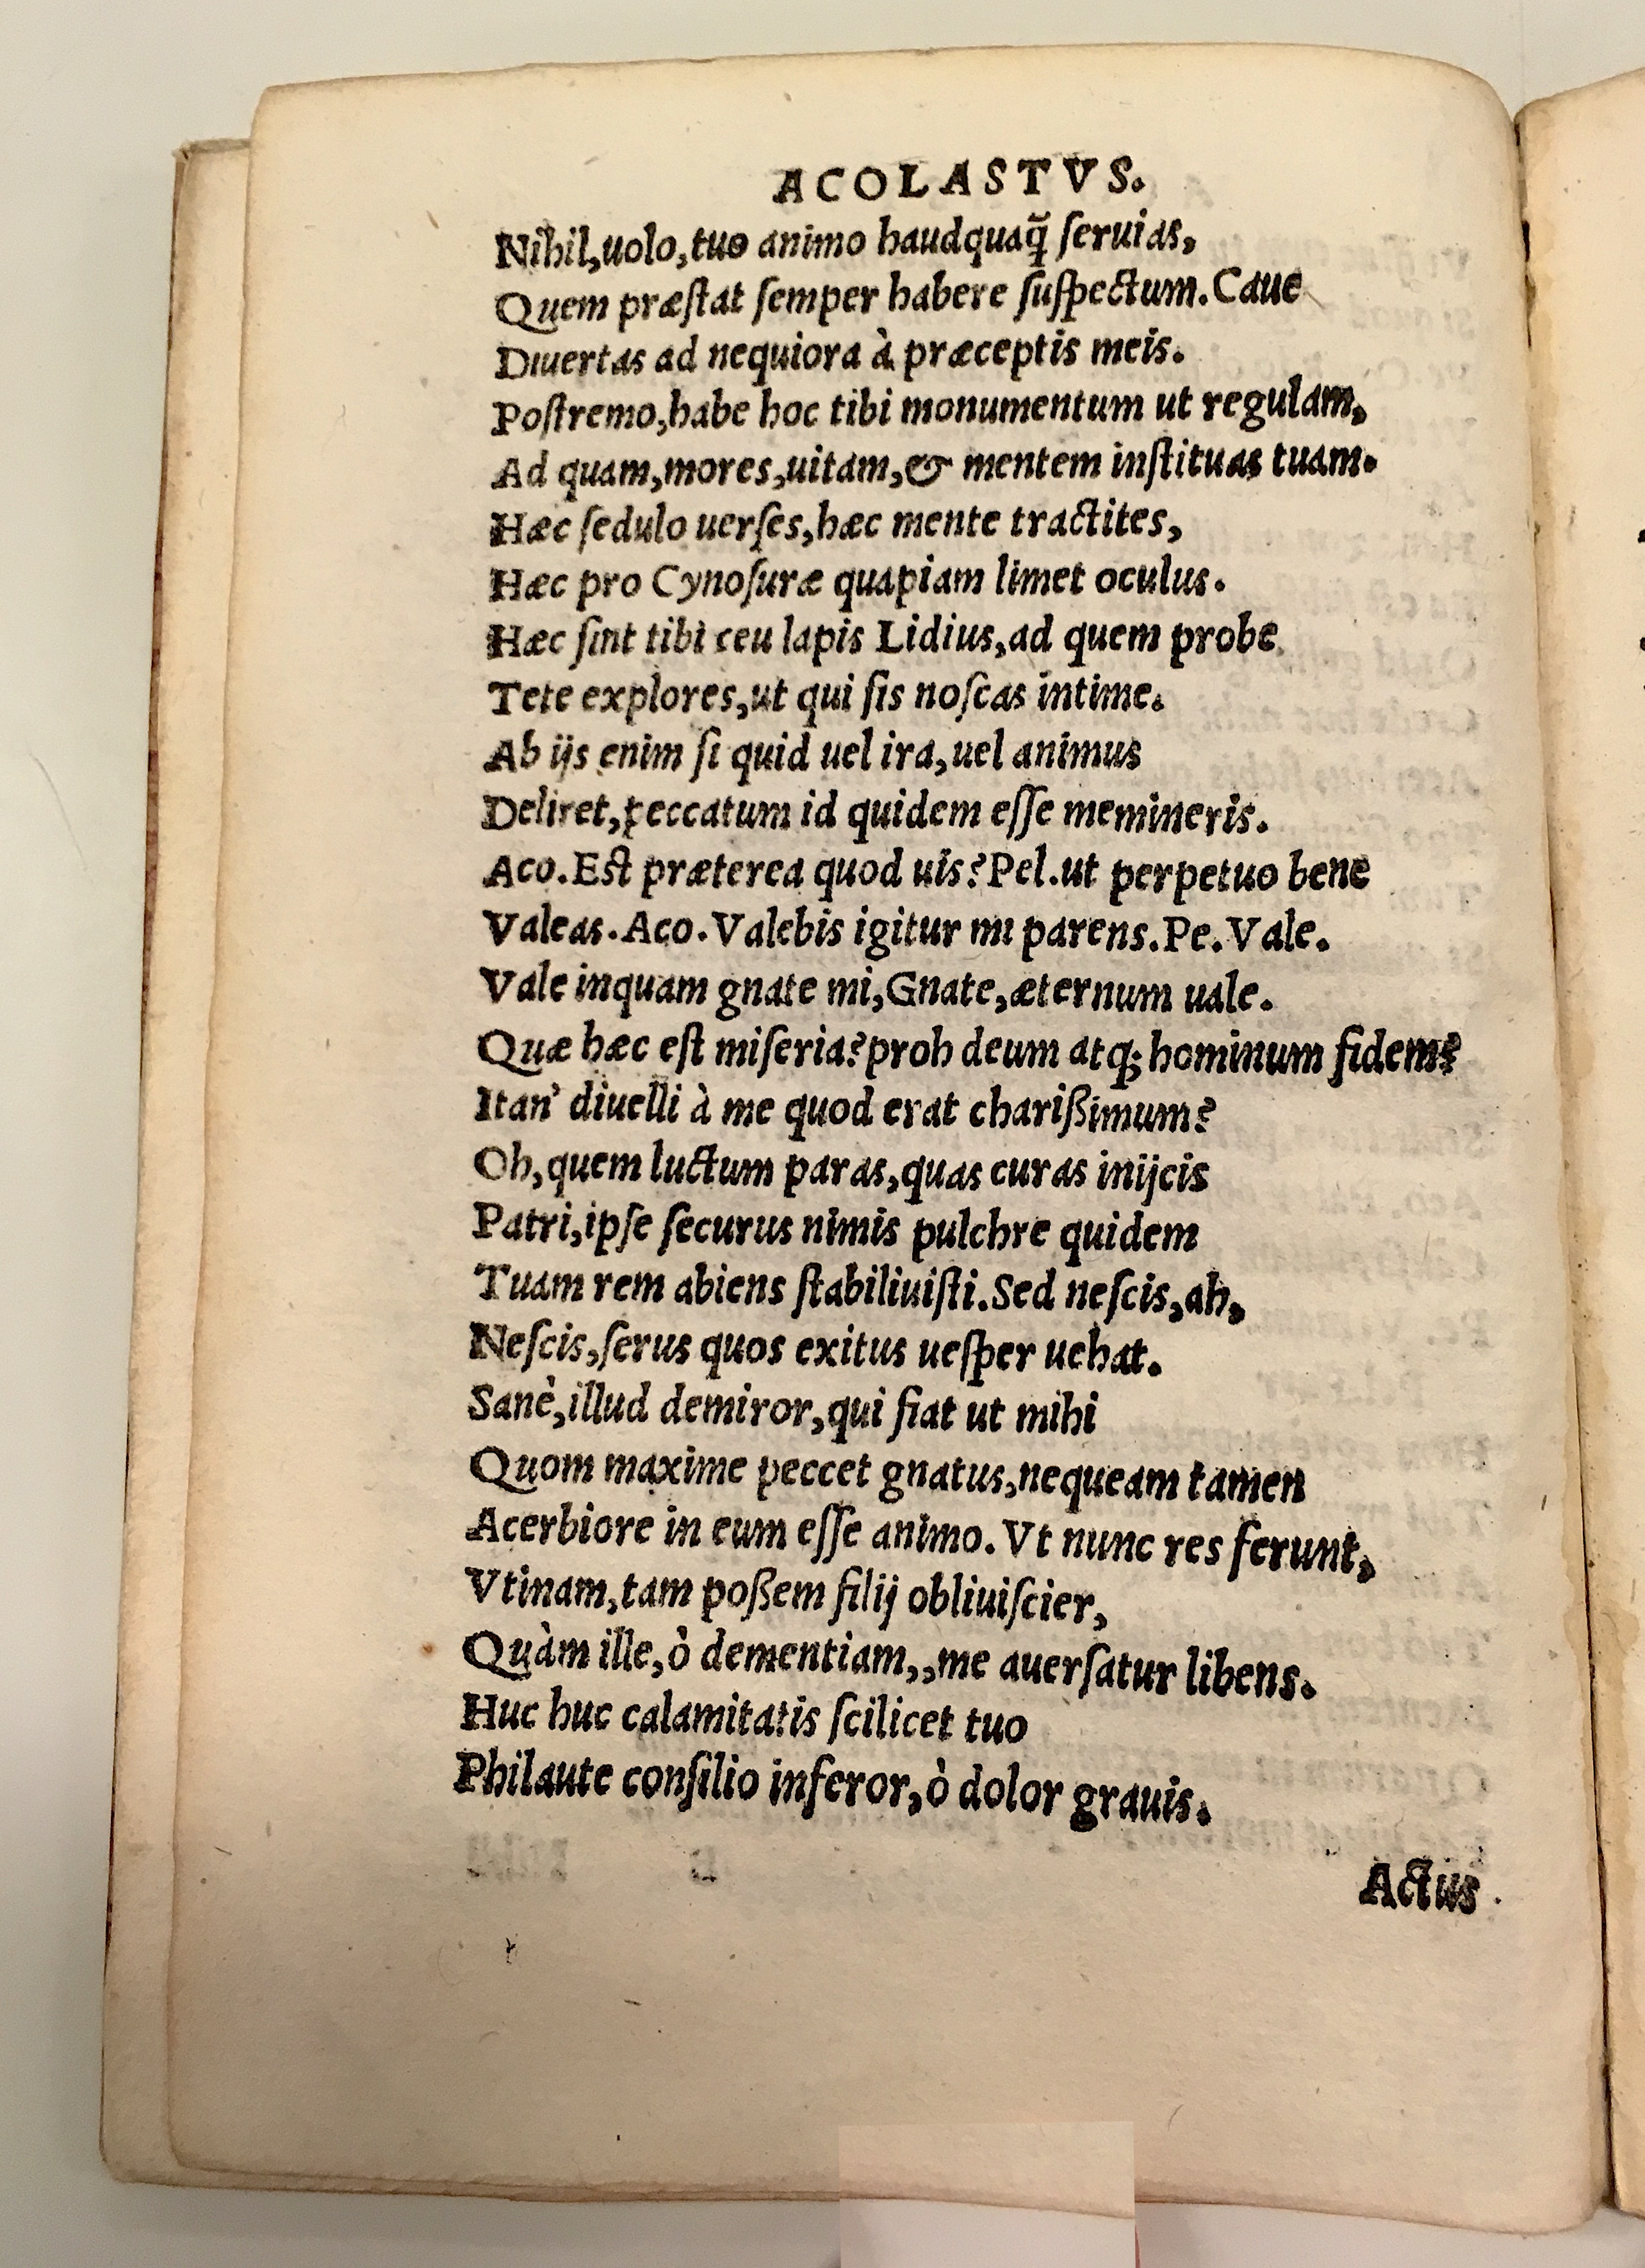 ACOLASTVS.
Nihil,uolo,tuo animo haudquaq̃ ſeruias,
Quem præſtat ſemper habere ſuſpectum.Caue
Diuertas ad nequiora à præceptis meis.
Poſtremo,habe hoc tibi monumentum ut regulam,
Ad quam,mores,uitam,& mentem inſtituas tuam.
Hæc ſedulo uerſes,hæc mente tractites,
Hæc pro Cynoſuræ quapiam limet oculus.
Hæc ſint tibi ceu lapis Lidius,ad quem probe
Tete explores,ut qui ſis noſcas intime.
Ab ijs enim ſi quid uel ira,uel animus
Deliret,peccatum id quidem eſſe memineris.
Aco.Eſt præterea quod uis?Pel.ut perpetuo bene
Valeas.Aco.Valebis igitur mi parens.Pe.Vale.
Vale inquam gnate mi,Gnate,æternum uale.
Quæ hæc eſt miſeria?proh deum atq; hominum fidem?
Itan' diuelli à me quod erat charißimum?
Oh,quem luctum paras,quas curas inijcis
Patri,ipſe ſecurus nimis pulchre quidem
Tuam rem abiens ſtabiliuiſti.Sed neſcis,ah,
Neſcis,ſerus quos exitus ueſper uehat.
Sanè,illud demiror,qui fiat ut mihi
Quom maxime peccet gnatus,nequeam tamen
Acerbiore in eum eſſe animo.Vt nunc res ferunt,
Vtinam,tam poßem filij obliuiſcier,
Quàm ille,ò dementiam,,me auerſatur libens.
Huc huc calamitatis ſcilicet tuo
Philaute conſilio inferor,ò dolor grauis.
Actus